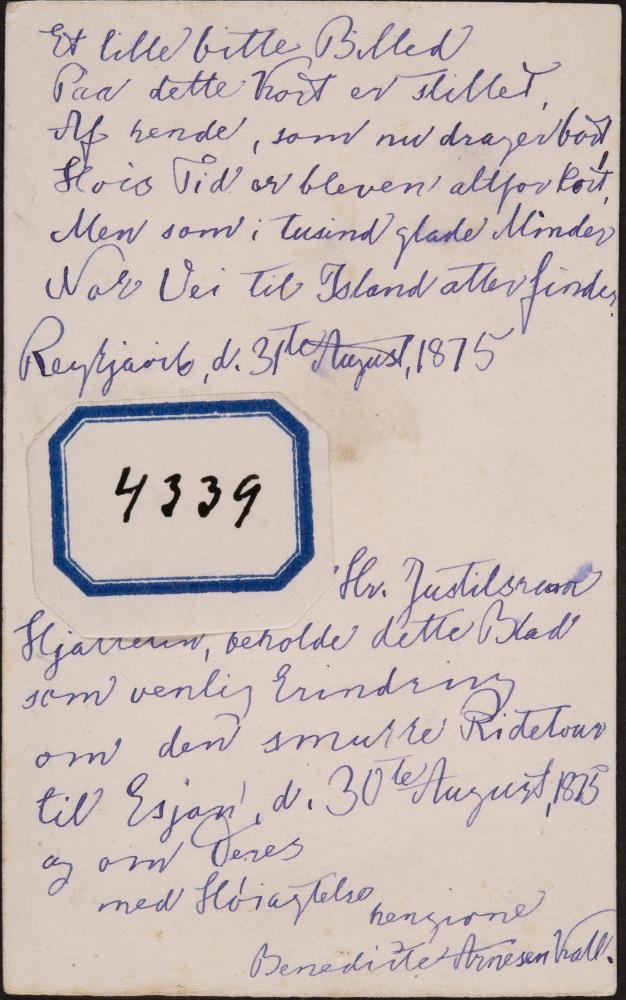 Et lille bitte Billed
Paa dette Kort er stillet,
Af hende, som nu drager bort,
Hvis Tid er bleven altfor kort,
Men som i tusind glade Minder
Nok Vei til Island atter finder.
Reykjavik, d. 31te August, 1875
4339
Hr. Justitsraad
Hjaltelin, beholde dette Blad
som venlig Erindring
om den smukke Ridetour
til Esjan, d. 30te August, 1875
og om Deres
med Höiagtelse
hengivne
Benedicte Arnesen Kall.